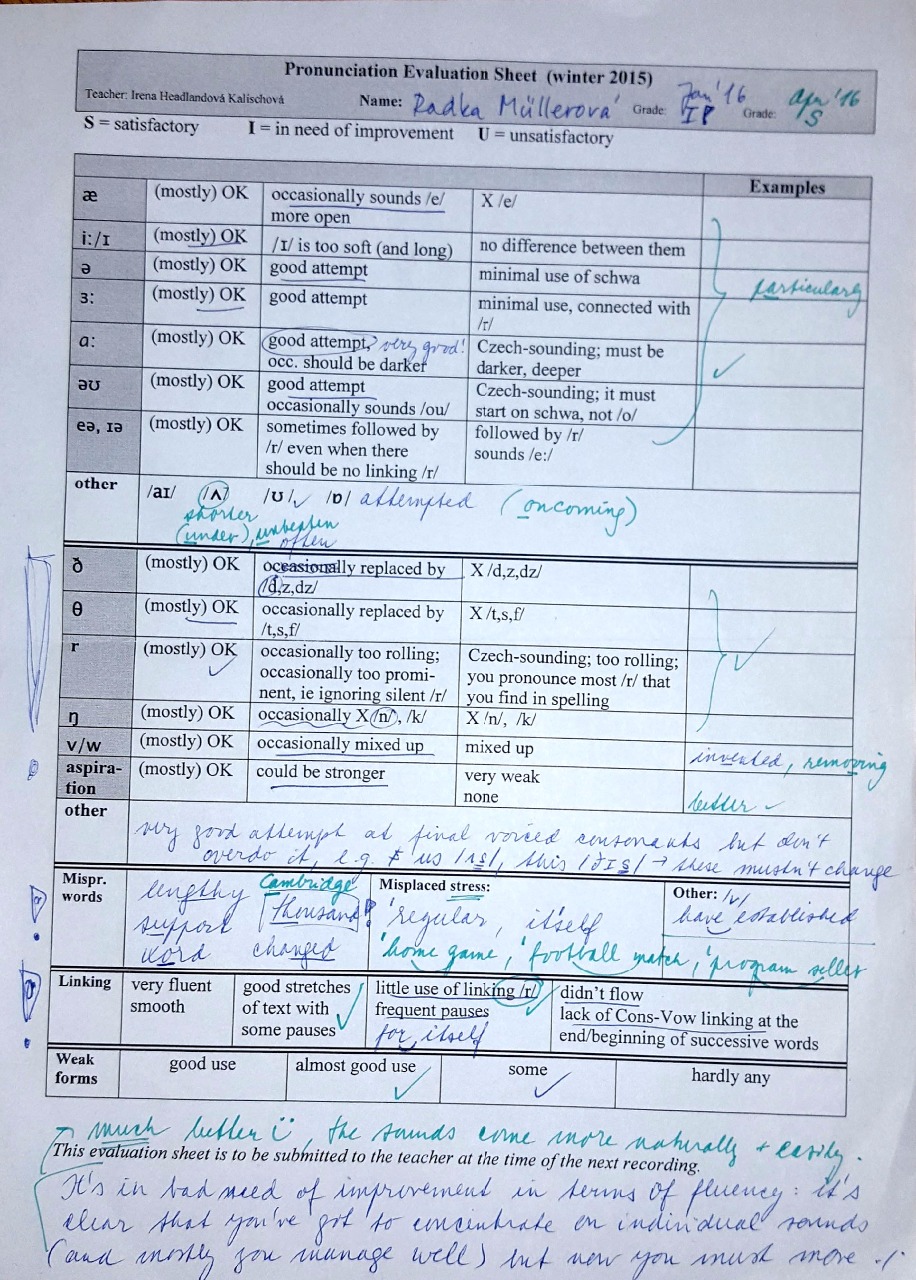 Pronunciation Evaluation Sheet (winter 2015)
Teacher: Irena Headlandová Kalischová Name: Radka Müllerová Grade: Jan'16 IP Grade: Apr'16 S
S = satisfactory I = in need of improvement U = unsatisfactory
Examples
æ (mostly) OK occasionally sounds /e/ X /e/
more open
i:/ɪ (mostly) OK /ɪ/ is too soft (and long) no difference between them
ə (mostly) OK good attempt minimal use of schwa
particularly
ɜ: (mostly) OK good attempt minimal use, connected with
/r/
ɑ: (mostly) OK good attempt, very good! Czech-sounding; must be
occ. should be darker darker, deeper
əʊ (mostly) OK good attempt Czech-sounding; it must
occasionally sounds /ou/ start on schwa, not /o/
eə, ɪə (mostly) OK sometimes followed by followed by /r/
/r/ even when there sounds /e:/
should be no linking /r/
other /aɪ/ /ʌ/ /ʊ/ /ɒ/ attempted (oncoming)
shorter
(under), unbeaten
often
ð (mostly) OK occasionally replaced by X /d,z,dz/
/d,z,dz/
θ (mostly) OK occasionally replaced by X /t,s,f/
/t,s,f/
r (mostly) OK occasionally too rolling; Czech-sounding; too rolling;
occasionally too promi- you pronounce most /r/ that
nent, ie ignoring silent /r/ you find in spelling
ŋ (mostly) OK occasionally X /n/, /k/ X /n/, /k/
v/w (mostly) OK occasionally mixed up mixed up invented, removing
aspira- (mostly) OK could be stronger very weak
tion none better
other
very good attempt at final voiced consonants but don't
overdo it, e.g. us /ʌs/, this /ðɪs/ → these mustn't change
Mispr. lengthy Cambridge Misplaced stress: Other: /v/
words support thousand 'regular, itself have established
word changed 'home game, 'football match, 'program seller
Linking very fluent good stretches little use of linking /r/ didn't flow
smooth of text with frequent pauses lack of Cons-Vow linking at the
some pauses for itself end/beginning of successive words
Weak good use almost good use some hardly any
forms
much better, the sounds come more naturally + easily.
This evaluation sheet is to be submitted to the teacher at the time of the next recording.
It's in bad need of improvement in terms of fluency: it's
clear that you've got to concentrate on individual sounds
(and mostly you manage well) but now you must move ./